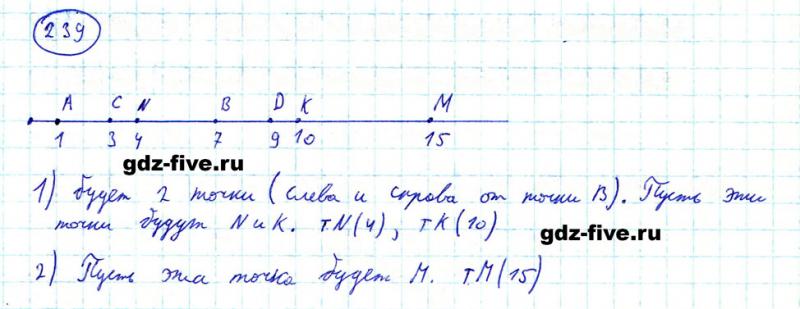 239
A C N B D K M
1 3 4 7 9 10 15
gdz-five.ru
1) будет 2 точки (слева и справа от точки B). Пусть эти
точки будут N и K. т N(4), т K(10)
gdz-five.ru
2) Пусть эта точка будет M. т M(15)